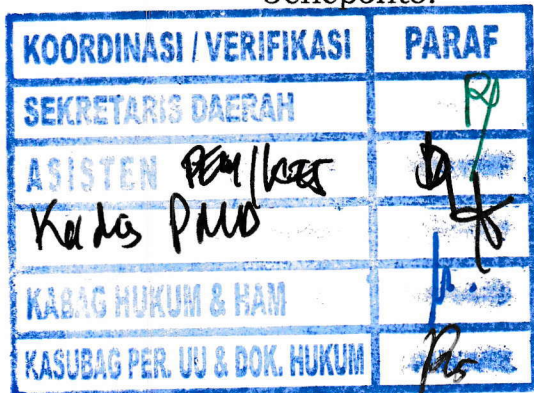 Jeneponto.
KOORDINASI / VERIFIKASI PARAF
SEKRETARIS DAERAH
ASISTEN PEM/KES
Kadis PMD
KABAG HUKUM & HAM
KASUBAG PER. UU & DOK. HUKUM